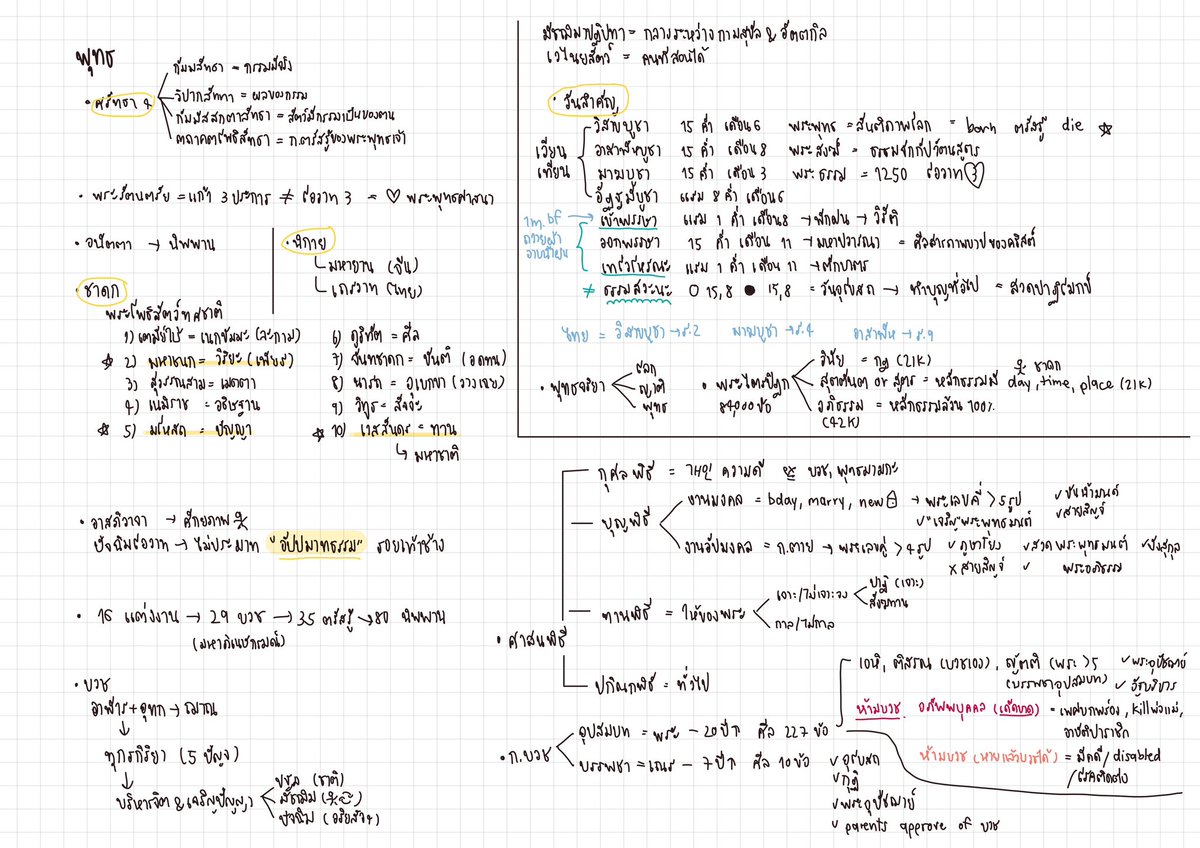 พุทธ
• ศรัทธา 4
กัมมสัทธา = กรรมมีจริง
วิปากสัทธา = ผลของกรรม
กัมมัสสกตาสัทธา = สัตว์มีกรรมเป็นของตน
ตถาคตโพธิสัทธา = ก.ตรัสรู้ของพระพุทธเจ้า
• พระรัตนตรัย = แก้ว 3 ประการ ≠ โอวาท 3 = ♡ พระพุทธศาสนา
• อนัตตา → นิพพาน
• นิกาย
มหายาน (จีน)
เถรวาท (ไทย)
• ชาดก
พระโพธิสัตว์ทศชาติ
1) เตมีย์ใบ้ = เนกขัมมะ (ละกาม)
☆ 2) มหาชนก = วิริยะ (เพียร)
3) สุวรรณสาม = เมตตา
4) เนมิราช = อธิษฐาน
☆ 5) มโหสถ = ปัญญา
6) ภูริทัต = ศีล
7) จันทชาดก = ขันติ (อดทน)
8) นารท = อุเบกขา (วางเฉย)
9) วิฑูร = สัจจะ
☆ 10) เวสสันดร = ทาน
↳ มหาชาติ
• อาสภิวาจา → ศักยภาพ
ปัจฉิมโอวาท → ไม่ประมาท "อัปปมาทธรรม" รอยเท้าช้าง
• 16 แต่งงาน → 29 บวช → 35 ตรัสรู้ → 80 นิพพาน
(มหาภิเนษกรมณ์)
• บวช
อาฬาร + อุทก → ฌาณ
↓
ทุกรกิริยา (5 ปัญจ)
↓
บริหารจิต & เจริญปัญญา
ปฐม (ชาติ)
มัชฌิม
ปัจฉิม (อริยสัจ4)
มัชฌิมาปฏิปทา = กลางระหว่างกามสุขัล & อัตตกิล
เวไนยสัตว์ = คนที่สอนได้
• วันสำคัญ
เวียนเทียน
วิสาขบูชา 15 ค่ำ เดือน 6 พระพุทธ = สันติภาพโลก = born ตรัสรู้ die ☆
อาสาฬหบูชา 15 ค่ำ เดือน 8 พระสงฆ์ = ธรรมจักกัปวัตนสูตร
มาฆบูชา 15 ค่ำ เดือน 3 พระธรรม = 1250 โอวาท 3
อัฏฐมีบูชา แรม 8 ค่ำ เดือน 6
1m. bf ถวายผ้าอาบน้ำฝน
เข้าพรรษา แรม 1 ค่ำ เดือน 8 → พักฝน → วิรัติ
ออกพรรษา 15 ค่ำ เดือน 11 → มหาปวารณา = คือสารภาพบาปของคริสต์
เทโวโรหณะ แรม 1 ค่ำ เดือน 11 → ตักบาตร
≠ ธรรมสวนะ ○ 15,8 ● 15,8 = วันอุโบสถ → ทำบุญทั่วไป = สวดปาฏิโมกข์
ไทย = วิสาขบูชา → ร.2 มาฆบูชา → ร.4 อาสาฬห → ร.9
• พุทธจริยา
โลก
ญาติ
พุทธ
• พระไตรปิฎก
84,000 ข้อ
วินัย = กฎ (21K)
สุตตันต or สูตร = หลักธรรมมี day, time, place (21K)
ชาดก
อภิธรรม = หลักธรรมล้วน 100%
(42K)
• ศาสนพิธี
กุศลพิธี = ความดี บวช, พุทธมามกะ
บุญพิธี
งานมงคล = bday, marry, new → พระเลขคี่ > 5 รูป ✓ ขันน้ำมนต์
✓ "เจริญ" พระพุทธมนต์ ✓ สายสิญจ์
งานอัปมงคล = ก.ตาย → พระเลขคู่ > 4 รูป ✓ ภูษาโยง ✓ สวดพระพุทธมนต์ ✓ บังสุกุล
× สายสิญจ์ ✓ พระอภิธรรม
ทานพิธี = ให้ของพระ
เจาะ/ไม่เจาะจง
ปาฏิ (เจาะ)
สังฆทาน
กาล/ไม่กาล
ปกิณกพิธี = ทั่วไป
• ก.บวช
อุปสมบท = พระ – 20 ปี↑ ศีล 227 ข้อ
บรรพชา = เณร – 7 ปี↑ ศีล 10 ข้อ
เอหิ, ติสรณ (บวชเอง), ญัตติ (พระ > 5 ✓ พระอุปัชฌาย์
(บรรพชาอุปสมบท) ✓ อัฐบริขาร
ห้ามบวช อภัพพบุคคล (เด็ดขาด) = เพศบกพร่อง, kill พ่อแม่,
อาบัติปาราชิก
ห้ามบวช (หายแล้วบวชได้) = มีคดี / disabled
/ โรคติดต่อ
✓ อุโบสถ
✓ กุฏิ
✓ พระอุปัชฌาย์
✓ parents approve of บวช